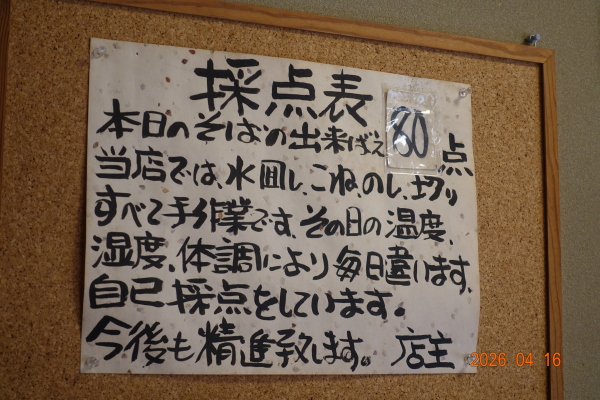 採点表
本日のそばの出来ばえ 80 点
当店では、水回し、こね、のし、切り
すべて手作業です。その日の温度、
湿度、体調により毎日違います。
自己採点をしています。
今後も精進致します。 店主
2026. 04. 16